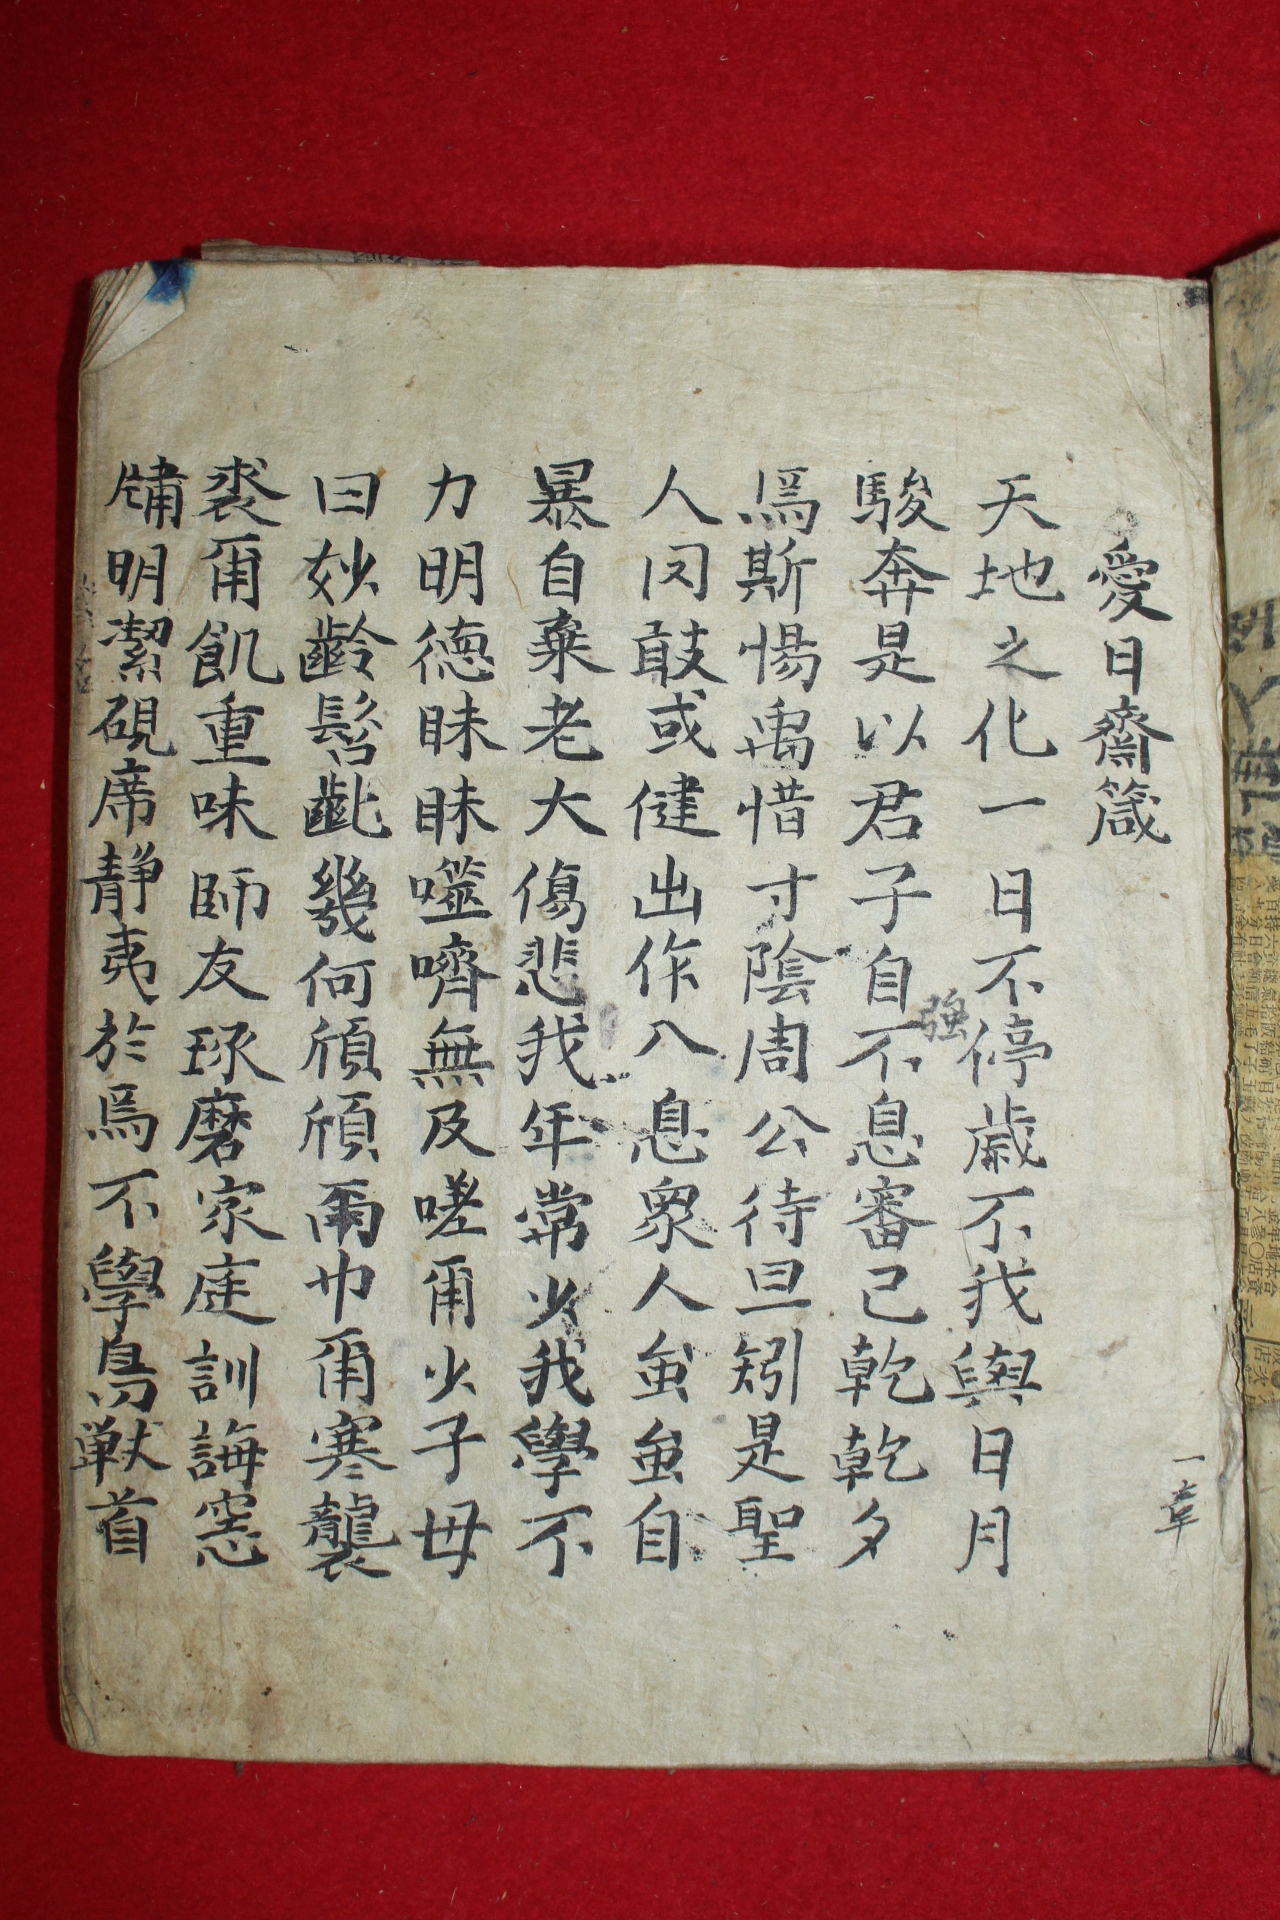 愛日齋箴
天地之化一日不停歲不我與日月
駿奔是以君子自不息審己乾乾夕
強
焉斯惕禹惜寸陰周公待旦矧是聖
人罔敢或健出作入息衆人蚩蚩自
暴自棄老大傷悲我年常少我學不
力明德昧昧噬嚌無及嗟爾少子毋
曰妙齡髫齔幾何頎頎爾巾爾寒襲
裘爾飢重味師友琢磨家庭訓誨窓
牗明潔硯席靜夷於焉不學鳥獣首
一章